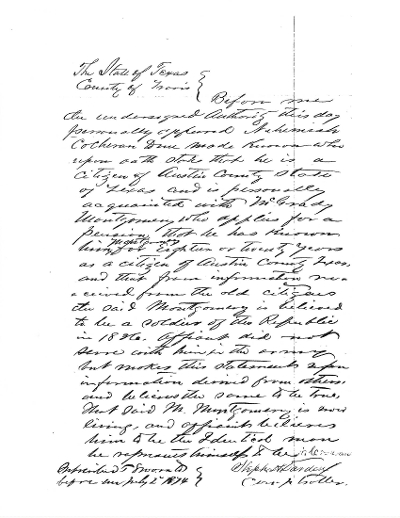 The State of Texas
County of Travis
Before me
the undersigned Authority this day
personally appeared Nehemiah
Cocheran & me made Known who
upon oath state that he is a
citizen of Austin County State
of Texas and is personally
acquainted with McGrady
Montgomery who applies for a
pension, that he has Known
him Montgomery for Eighteen or twenty years
as a citizen of Austin County Texas
and that from information re-
ceived from the old citizens
the said Montgomery is believed
to be a soldier of the Republic
in 1836. affiant did not
serve with him in the army
but makes this statements upon
information derived from others
and believes the same to be true.
That said M. Montgomery is now
living, and affiant believes
him to be the Identical man
he represents himself to be
Subscribed & Sworn to
before me July 2d 1874
Stephen H Darden
Comptroller